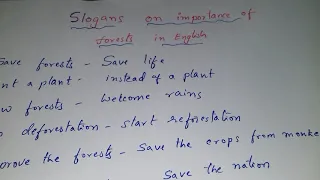 Slogans on importance of
forests in English
Save forests - Save life
a plant - instead of a plant
forests - Welcome rains
deforestation - start reforestation
the forests - Save the crops from
Save the nation